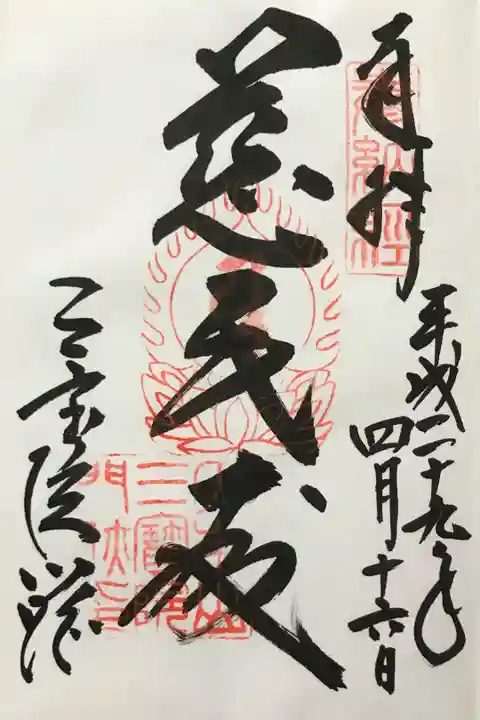 奉拝
平成二十九年
四月十六日
慈氏殿
三宝院
三寶院